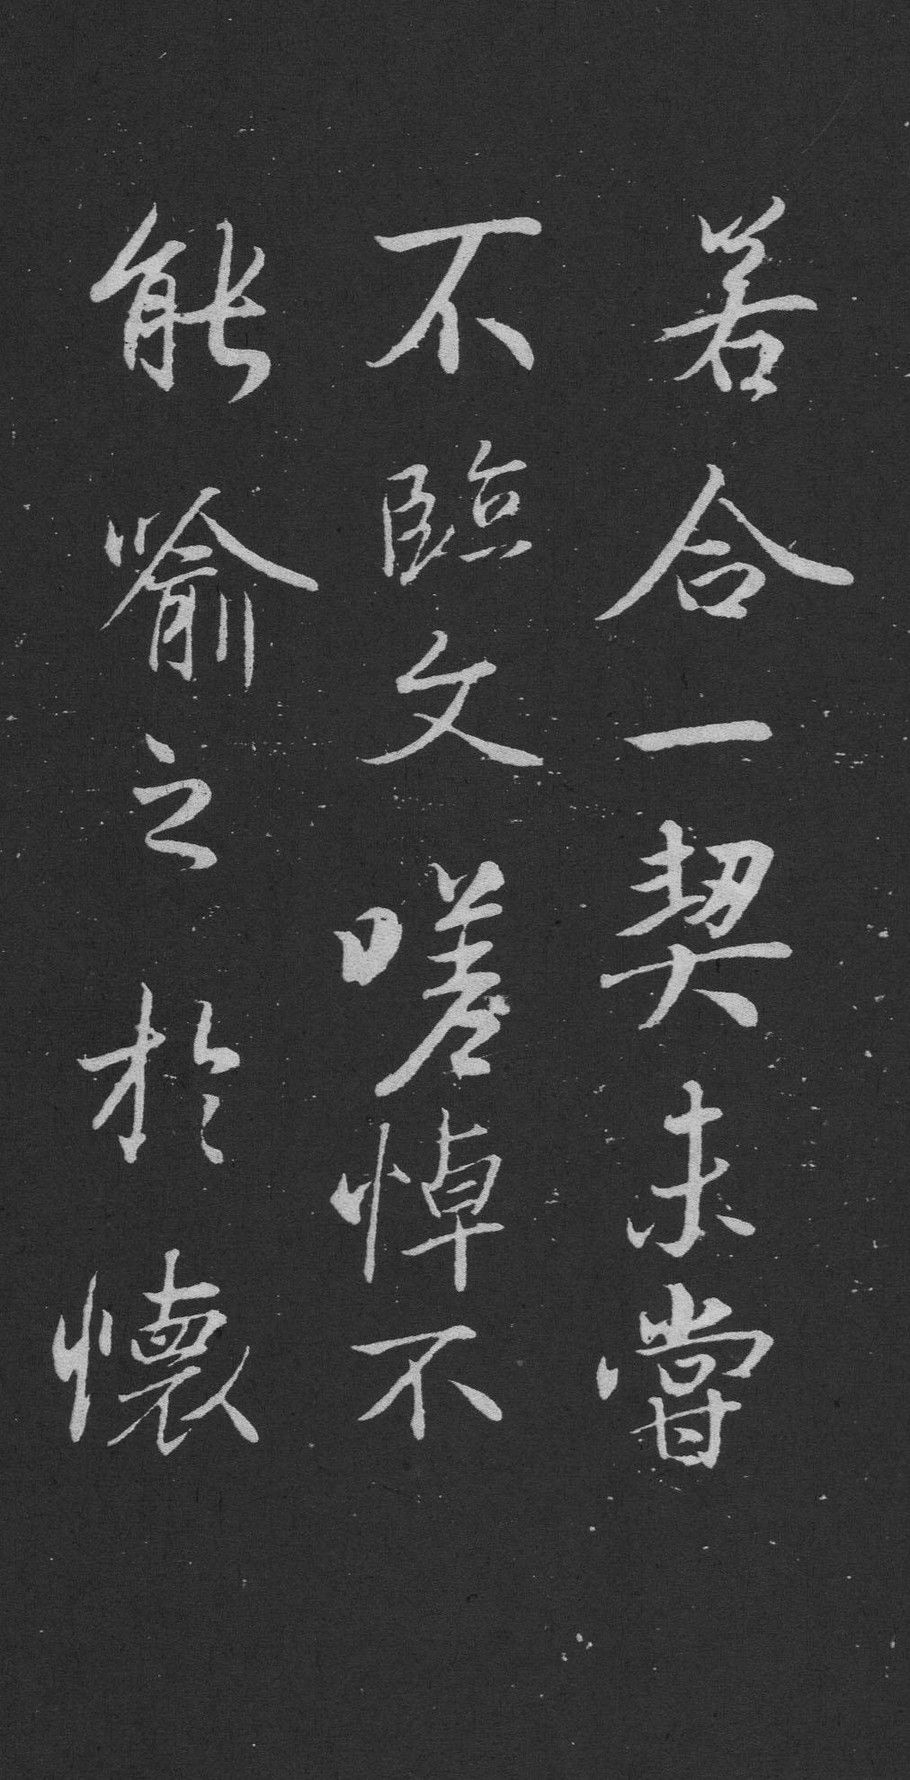 若合一契未嘗
不臨文嗟悼不
能喻之於懷